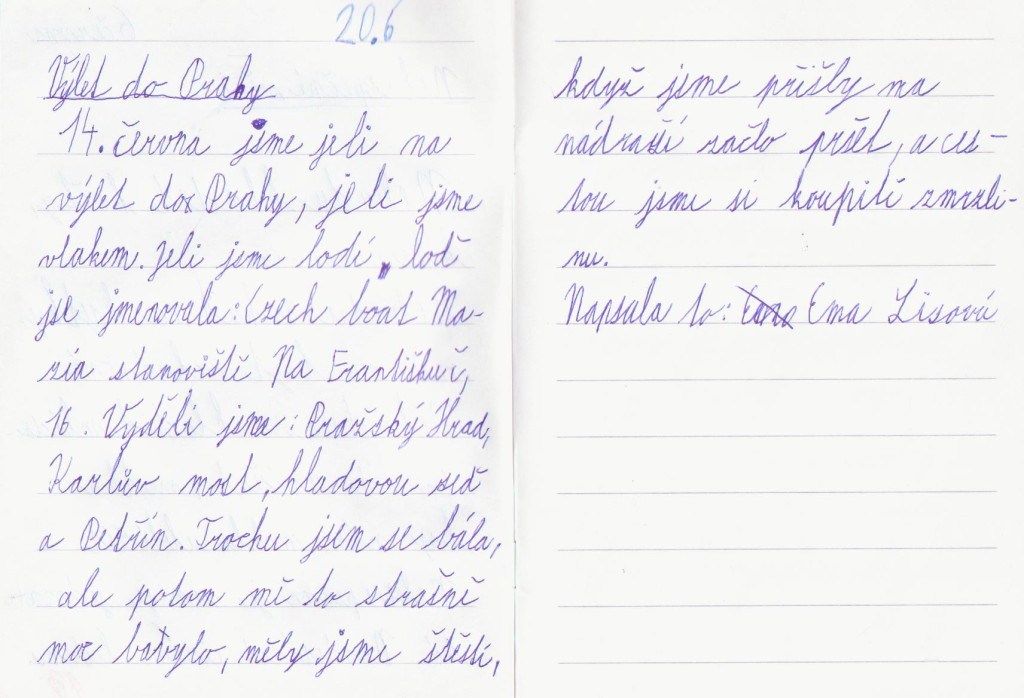 20.6
Výlet do Prahy
14. června jsme jeli na
výlet do Prahy, jeli jsme
vlakem. Jeli jsme lodí, loď
jse jmenovala: Czech boat Ma-
ria stanoviště Na Františku č,
16. Vyděli jsme: Pražský Hrad,
Karlův most, hladovou zeď
a Petřín. Trochu jsem se bála,
ale potom mě to strašně
moc bavylo, měly jsme štěstí,
když jsme přišly na
nádraší začlo pršet, a ces-
tou jsme si koupili zmrzli-
nu.
Napsala to: Ema Lisová